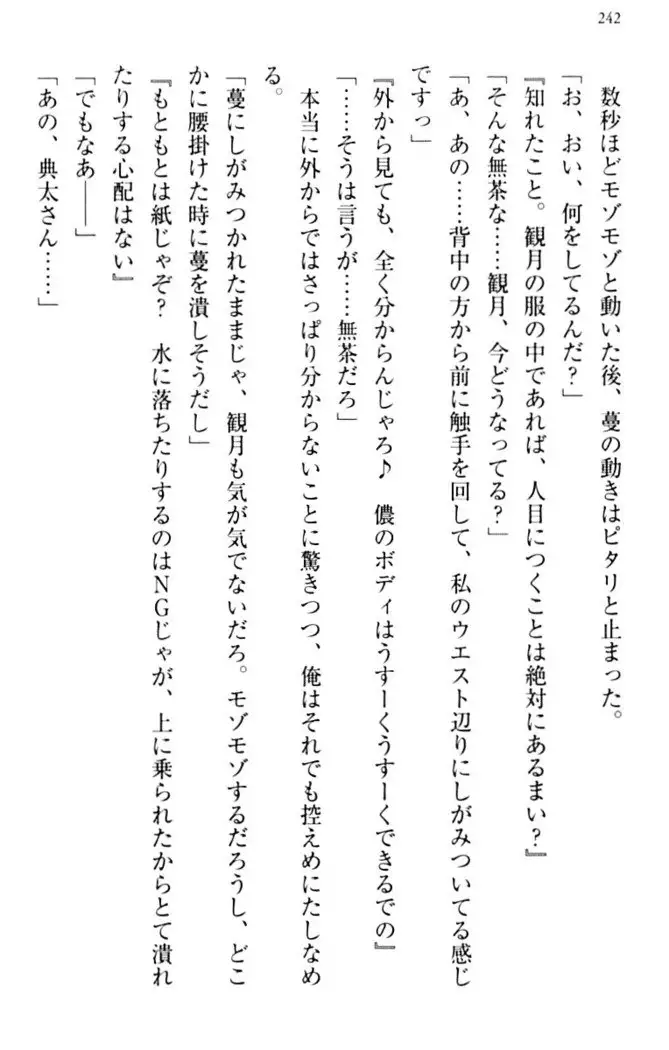 242
数秒ほどモゾモゾと動いた後、蔓の動きはピタリと止まった。
「お、おい、何をしてるんだ?」
『知れたこと。観月の服の中であれば、人目につくことは絶対にあるまい?』
「そんな無茶な……観月、今どうなってる?」
「あ、あの……背中の方から前に触手を回して、私のウエスト辺りにしがみついてる感じ
ですっ」
『外から見ても、全く分からんじゃろ♪　儂のボディはうすーくうすーくできるでの』
「……そうは言うが……無茶だろ」
本当に外からではさっぱり分からないことに驚きつつ、俺はそれでも控えめにたしなめ
る。
「蔓にしがみつかれたままじゃ、観月も気が気でないだろ。モゾモゾするだろうし、どこ
かに腰掛けた時に蔓を潰しそうだし」
『もともとは紙じゃぞ?　水に落ちたりするのはNGじゃが、上に乗られたからとて潰れ
たりする心配はない』
「でもなあ――」
「あの、典太さん……」